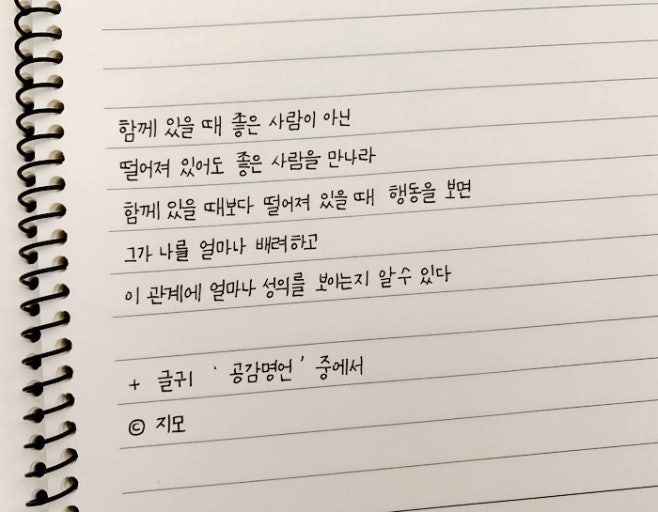 함께 있을 때 좋은 사람이 아닌
떨어져 있어도 좋은 사람을 만나라
함께 있을 때보다 떨어져 있을 때 행동을 보면
그가 나를 얼마나 배려하고
이 관계에 얼마나 성의를 보이는지 알 수 있다
+ 글귀 ' 공감명언 ' 중에서
© 지모